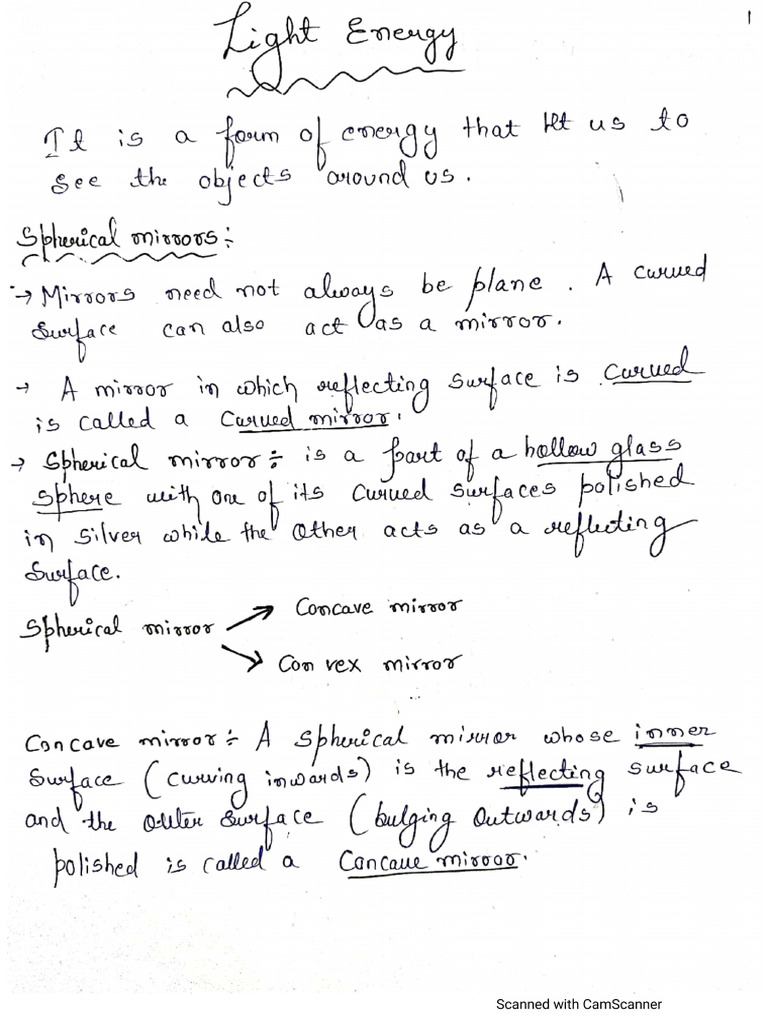 1
Light Energy
It is a form of energy that let us to
see the objects around us.
Spherical mirrors:
→ Mirrors need not always be plane. A curved
surface can also act as a mirror.
→ A mirror in which reflecting surface is curved
is called a curved mirror.
→ Spherical mirror ÷ is a part of a hollow glass
sphere with one of its curved surfaces polished
in silver while the other acts as a reflecting
surface.
Concave mirror
Spherical mirror
Convex mirror
Concave mirror ÷ A spherical mirror whose inner
surface (curving inwards) is the reflecting surface
and the outer surface (bulging outwards) is
polished is called a Concave mirror.
Scanned with CamScanner